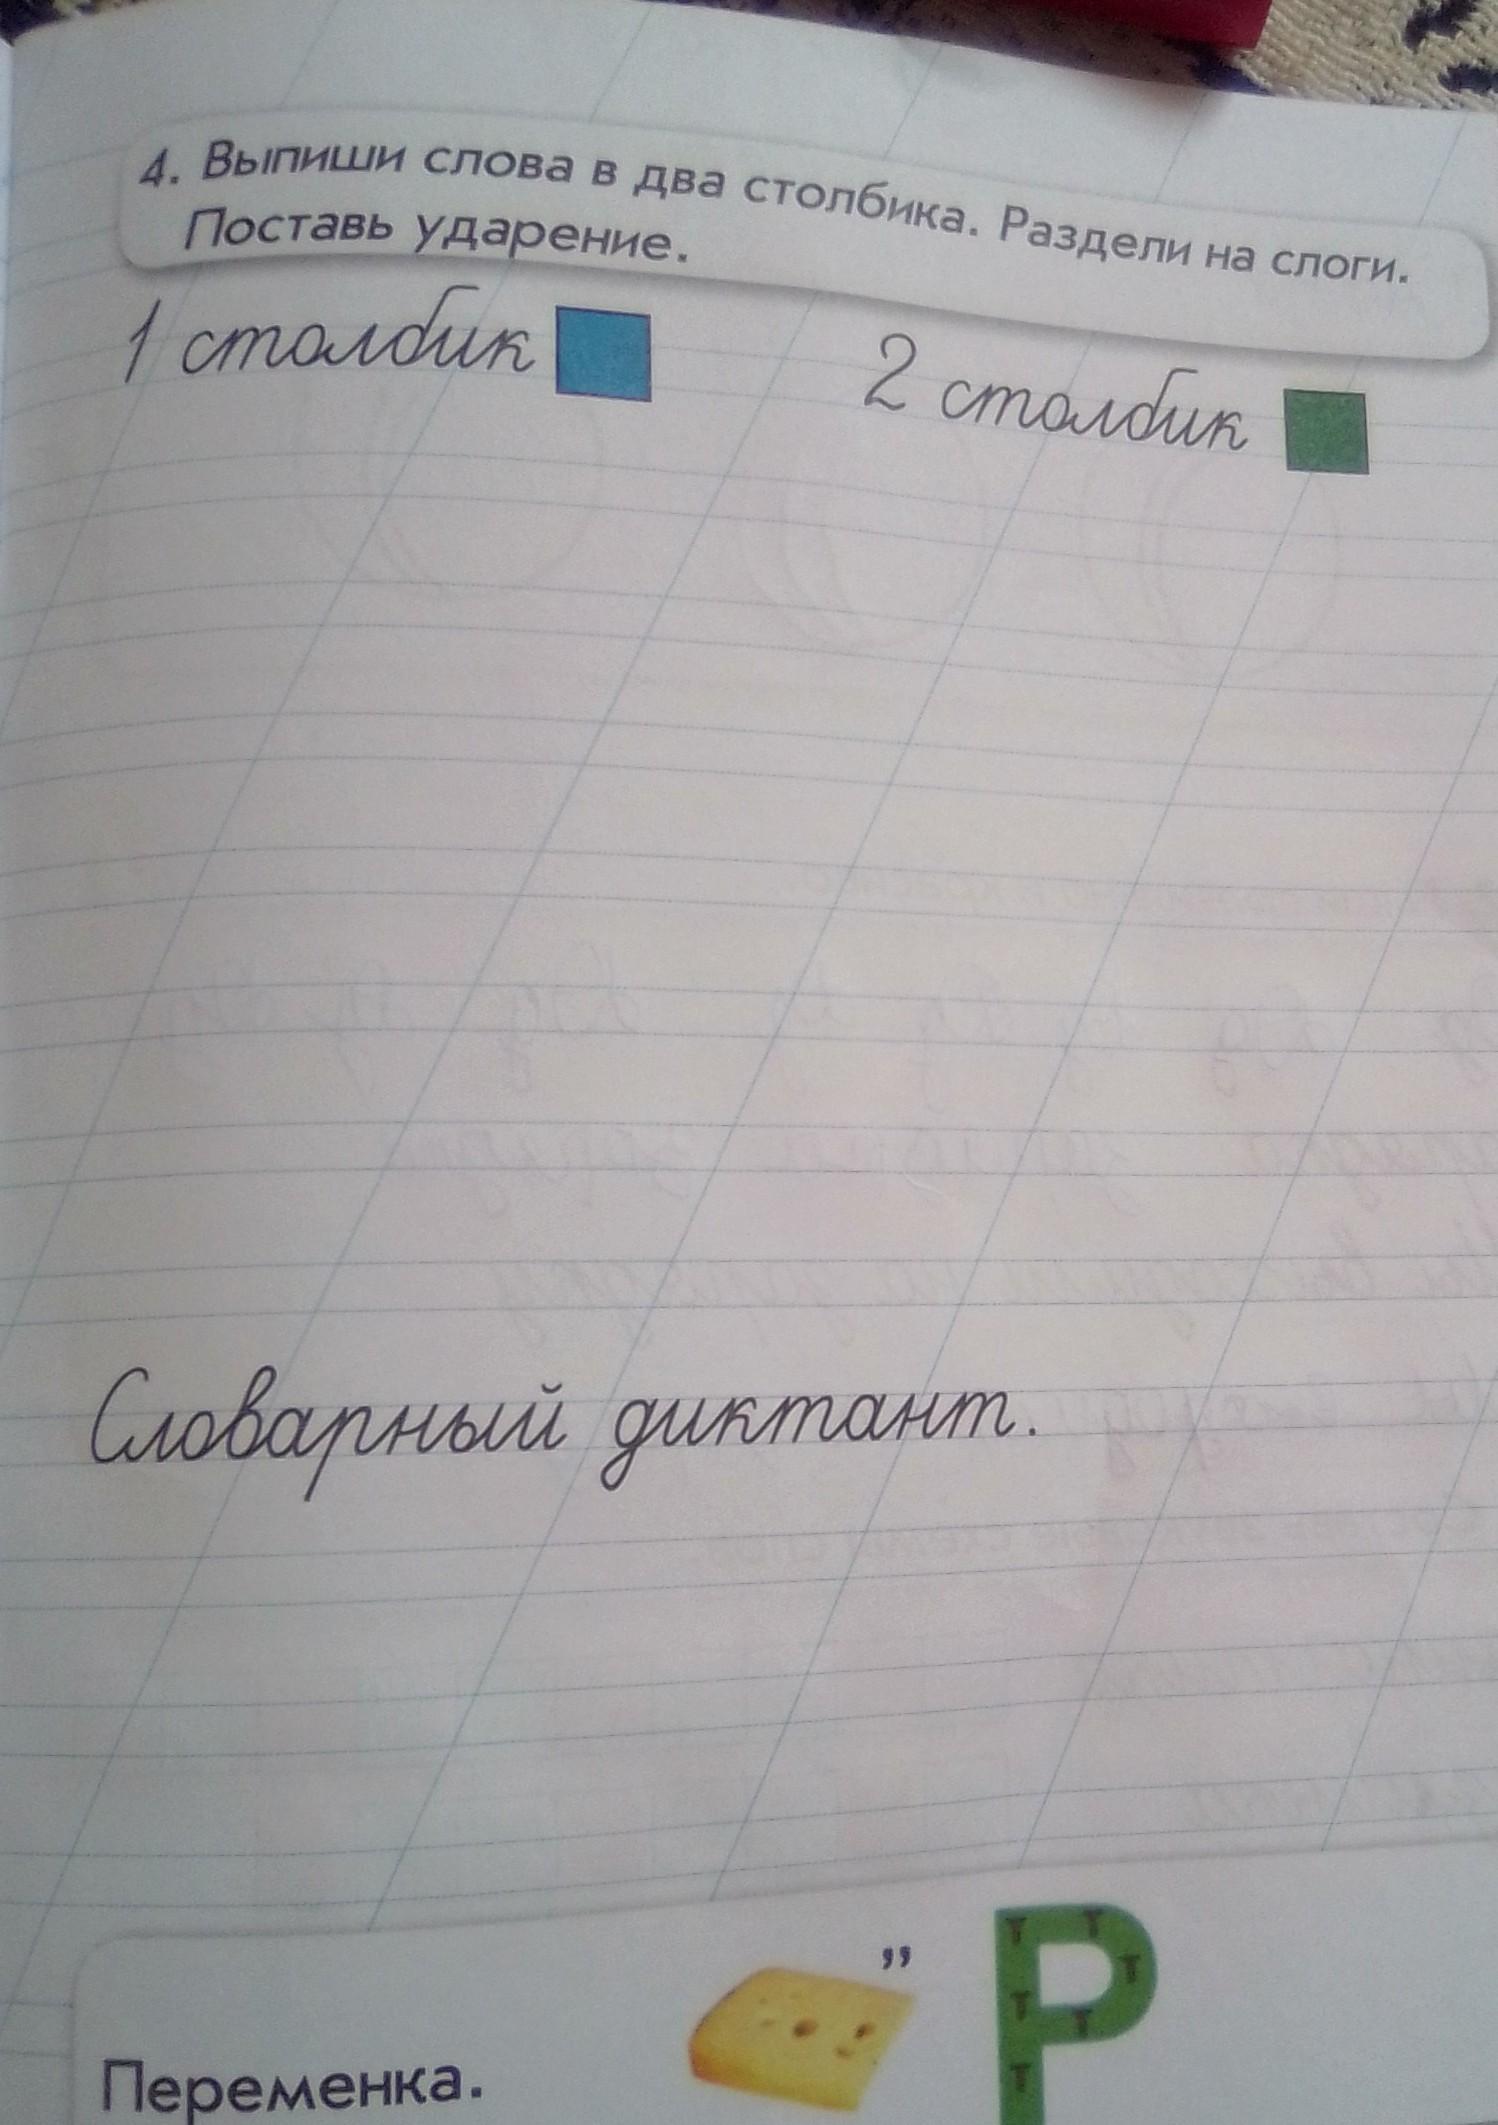 4. Выпиши слова в два столбика. Раздели на слоги.
Поставь ударение.
1 столбик
2 столбик
Словарный диктант.
Переменка.
,,
Р
т т т т т т